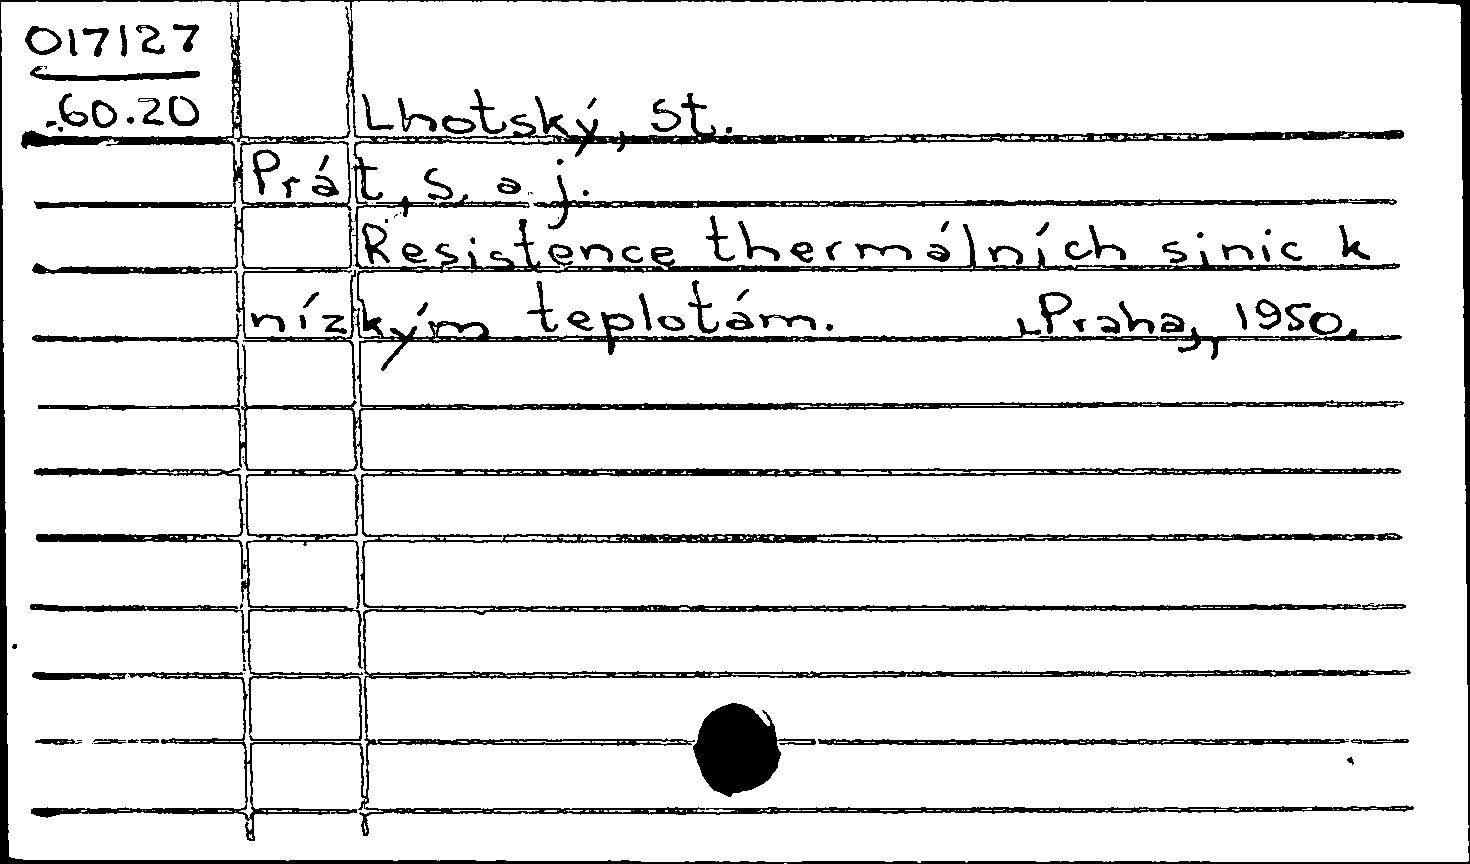 017127
60.20 Lhotský, St.
Prát, S. a j.
Resistence thermálních sinic k
nízkým teplotám. Praha, 1950.